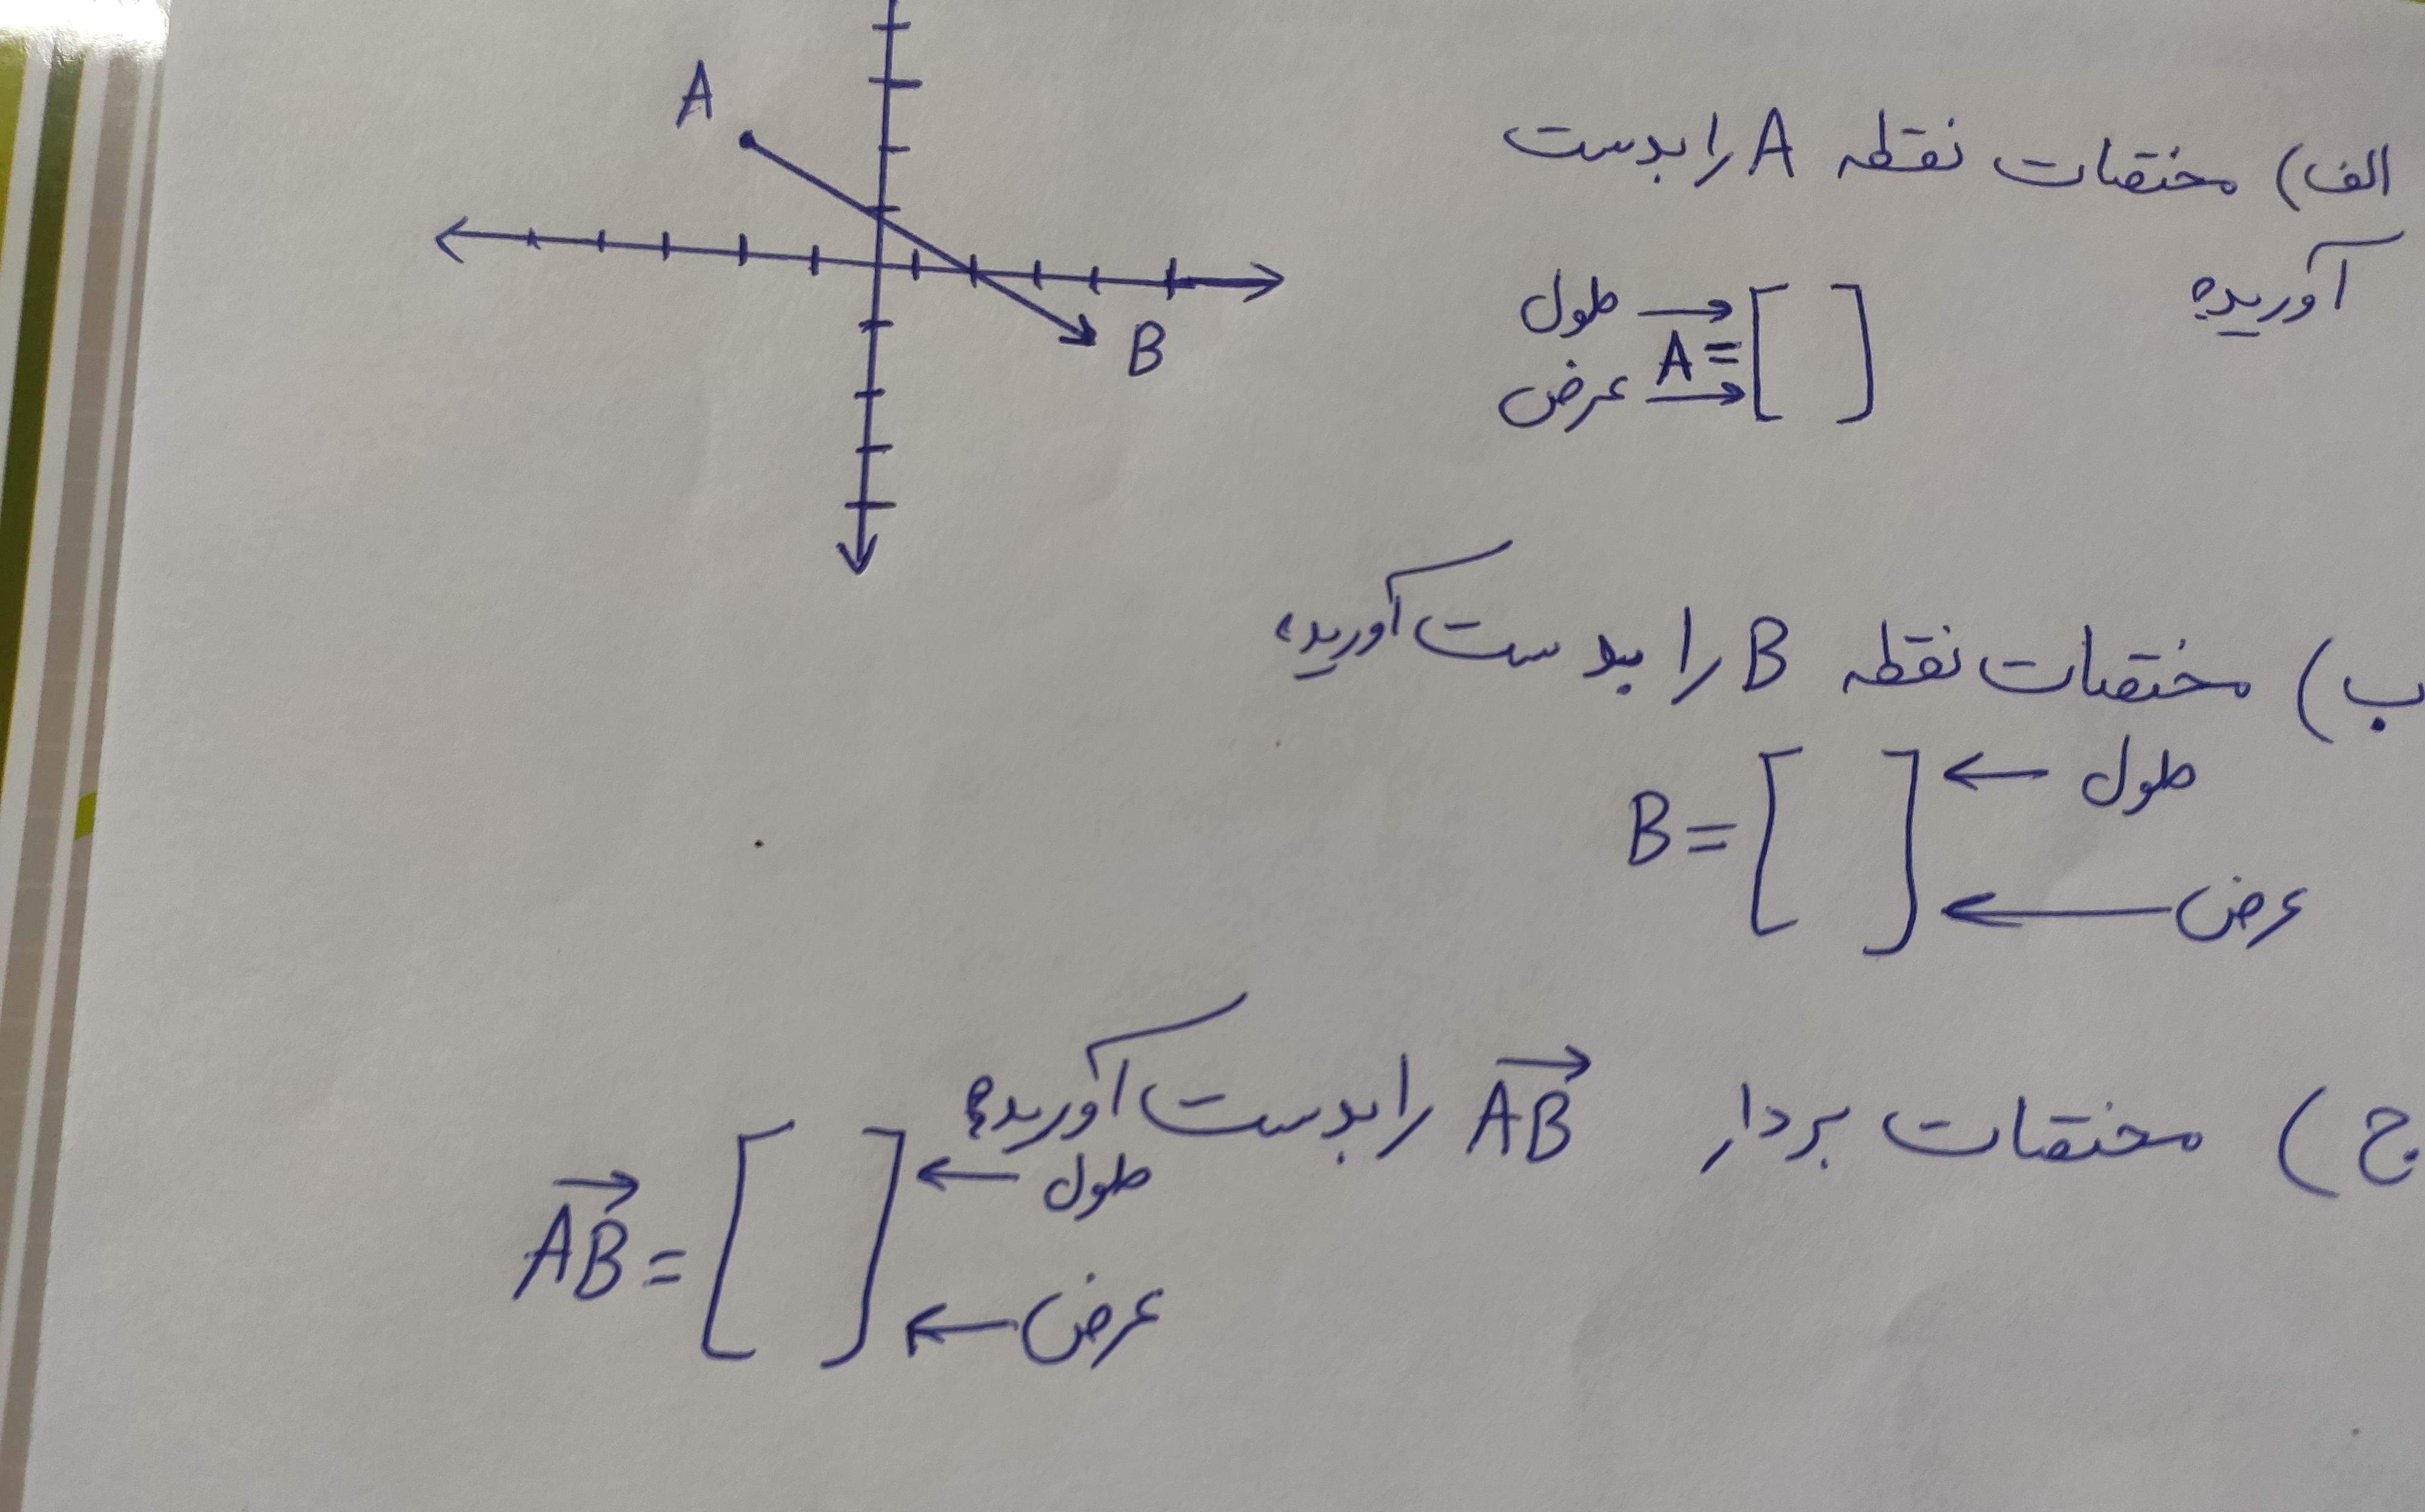 A
B
الف) مختصات نقطه A را بدست
آورید؟
طول →
A = [ ]
عرض →
ب) مختصات نقطه B را بدست آورید؟
B = [ ] ← طول
← عرض
ج) مختصات بردار AB را بدست آورید؟
AB = [ ] ← طول
← عرض